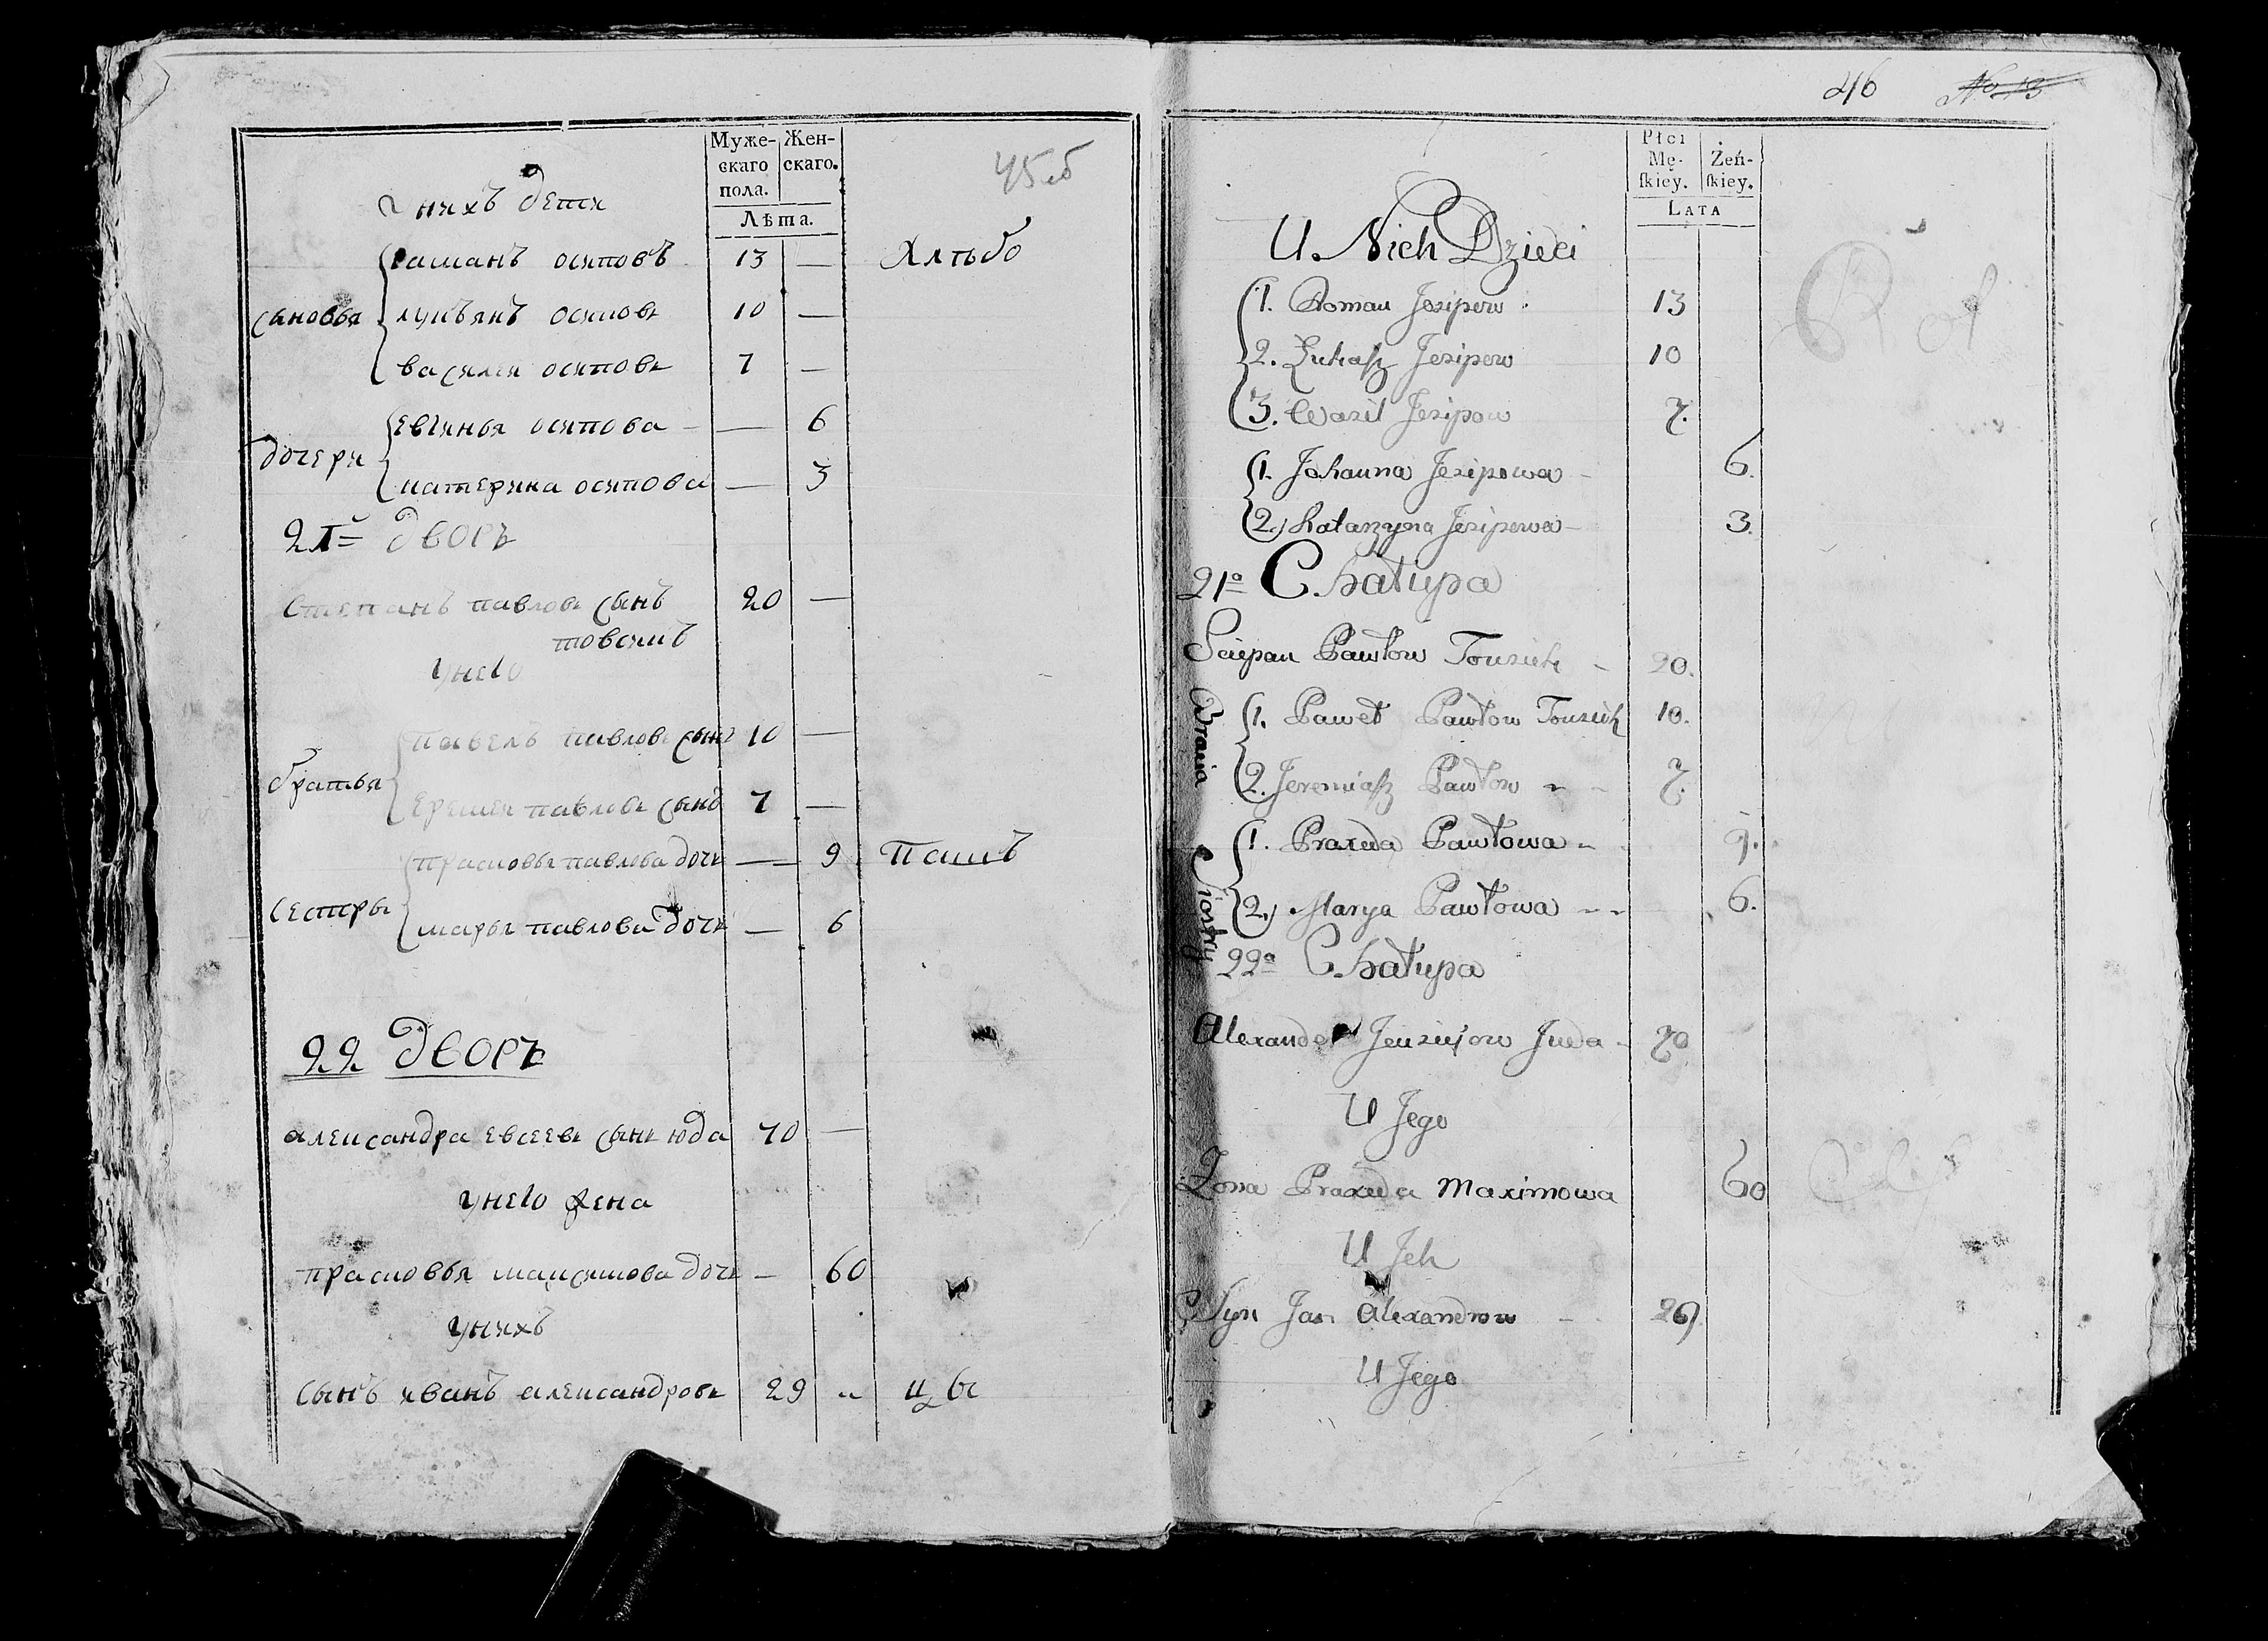 Муже-
скаго
пола.
Жен-
скаго.
Лѣта.
45об
у нихъ дети
сановья
раманъ осиповъ 13 —
Хлѣбо
лукъянъ осипове 10 —
василеи осипове 7 —
дочери
евгинья осипова — — 6
катерина осипова — 3
21й дворъ
степанъ павлове сынъ 20 —
товсикъ
унего
братья
павелъ павлове сынъ 10 —
еремеи павлове сынъ 7 —
сестры
прасковья павлова дочь — 9
Пашъ
марья павлова дочь — 6
22 дворъ
александра евсееве сыне юда 70 —
унего жена
прасковья максимова дочь — 60
унихъ
сынъ иванъ александрове 29 "
46 No 13
Płci
Mę-
ſkiey.
Żeń-
ſkiey.
LATA
U Nich Dzieci
1. Roman Jozipow 13
2. Łukaſz Jozipow 10
3. Wasil Jozipow 7.
1. Johanna Jozipowa - 6.
2. Katarzyna Jozipowa - 3.
21a Chałupa
Sciepan Pawłow Towsik - 20.
Bracia
1. Paweł Pawłow Towsik 10.
2. Jeremiaſz Pawłow - - 7.
Siostry
1. Praxeda Pawłowa - 9.
2. Marya Pawłowa - - 6.
22a Chałupa
Alexander Jewsiejow Juda - 70
U Jego
Żona Praxeda Maximowa 60
U Jch
Syn Jan Alexandrow - 29
U Jego